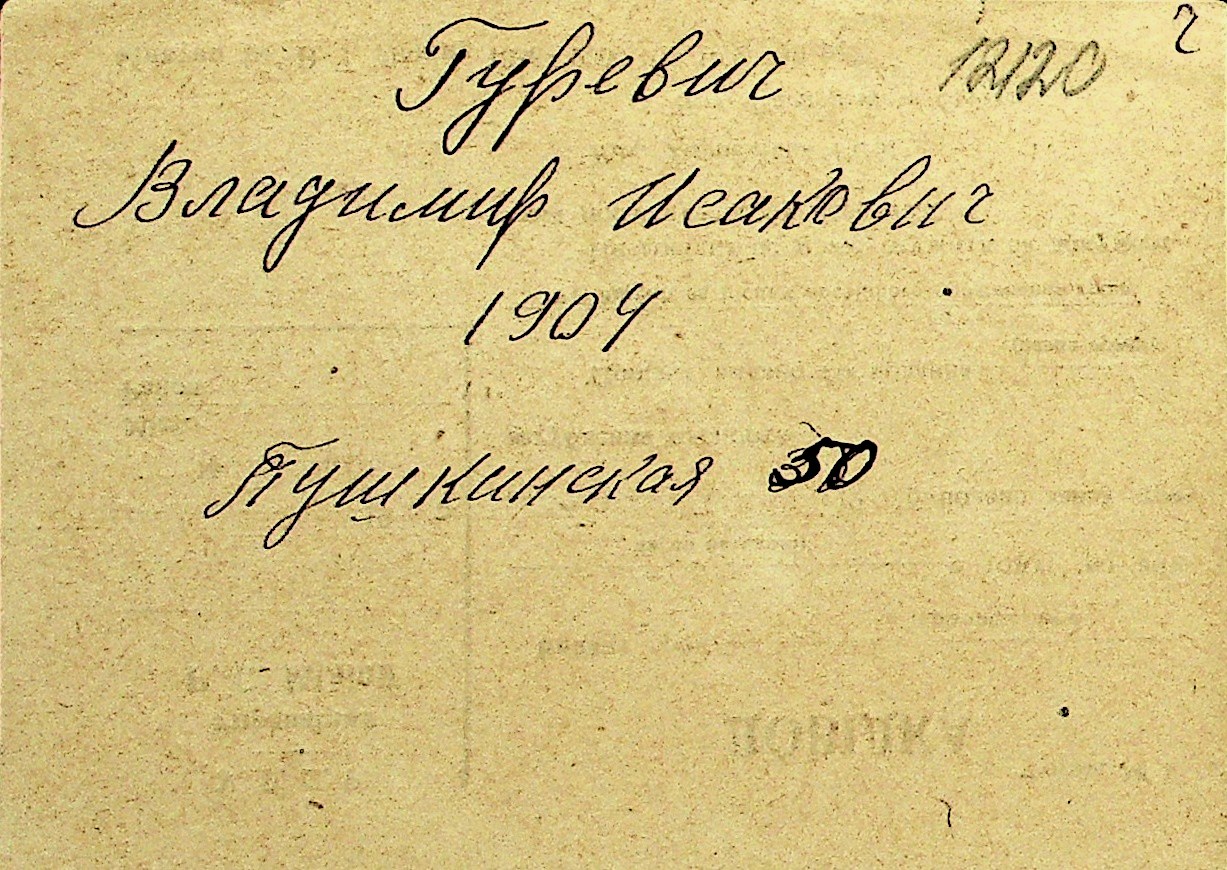 Гуревич 12120
Владимир Исакович
1904
Пушкинская 50